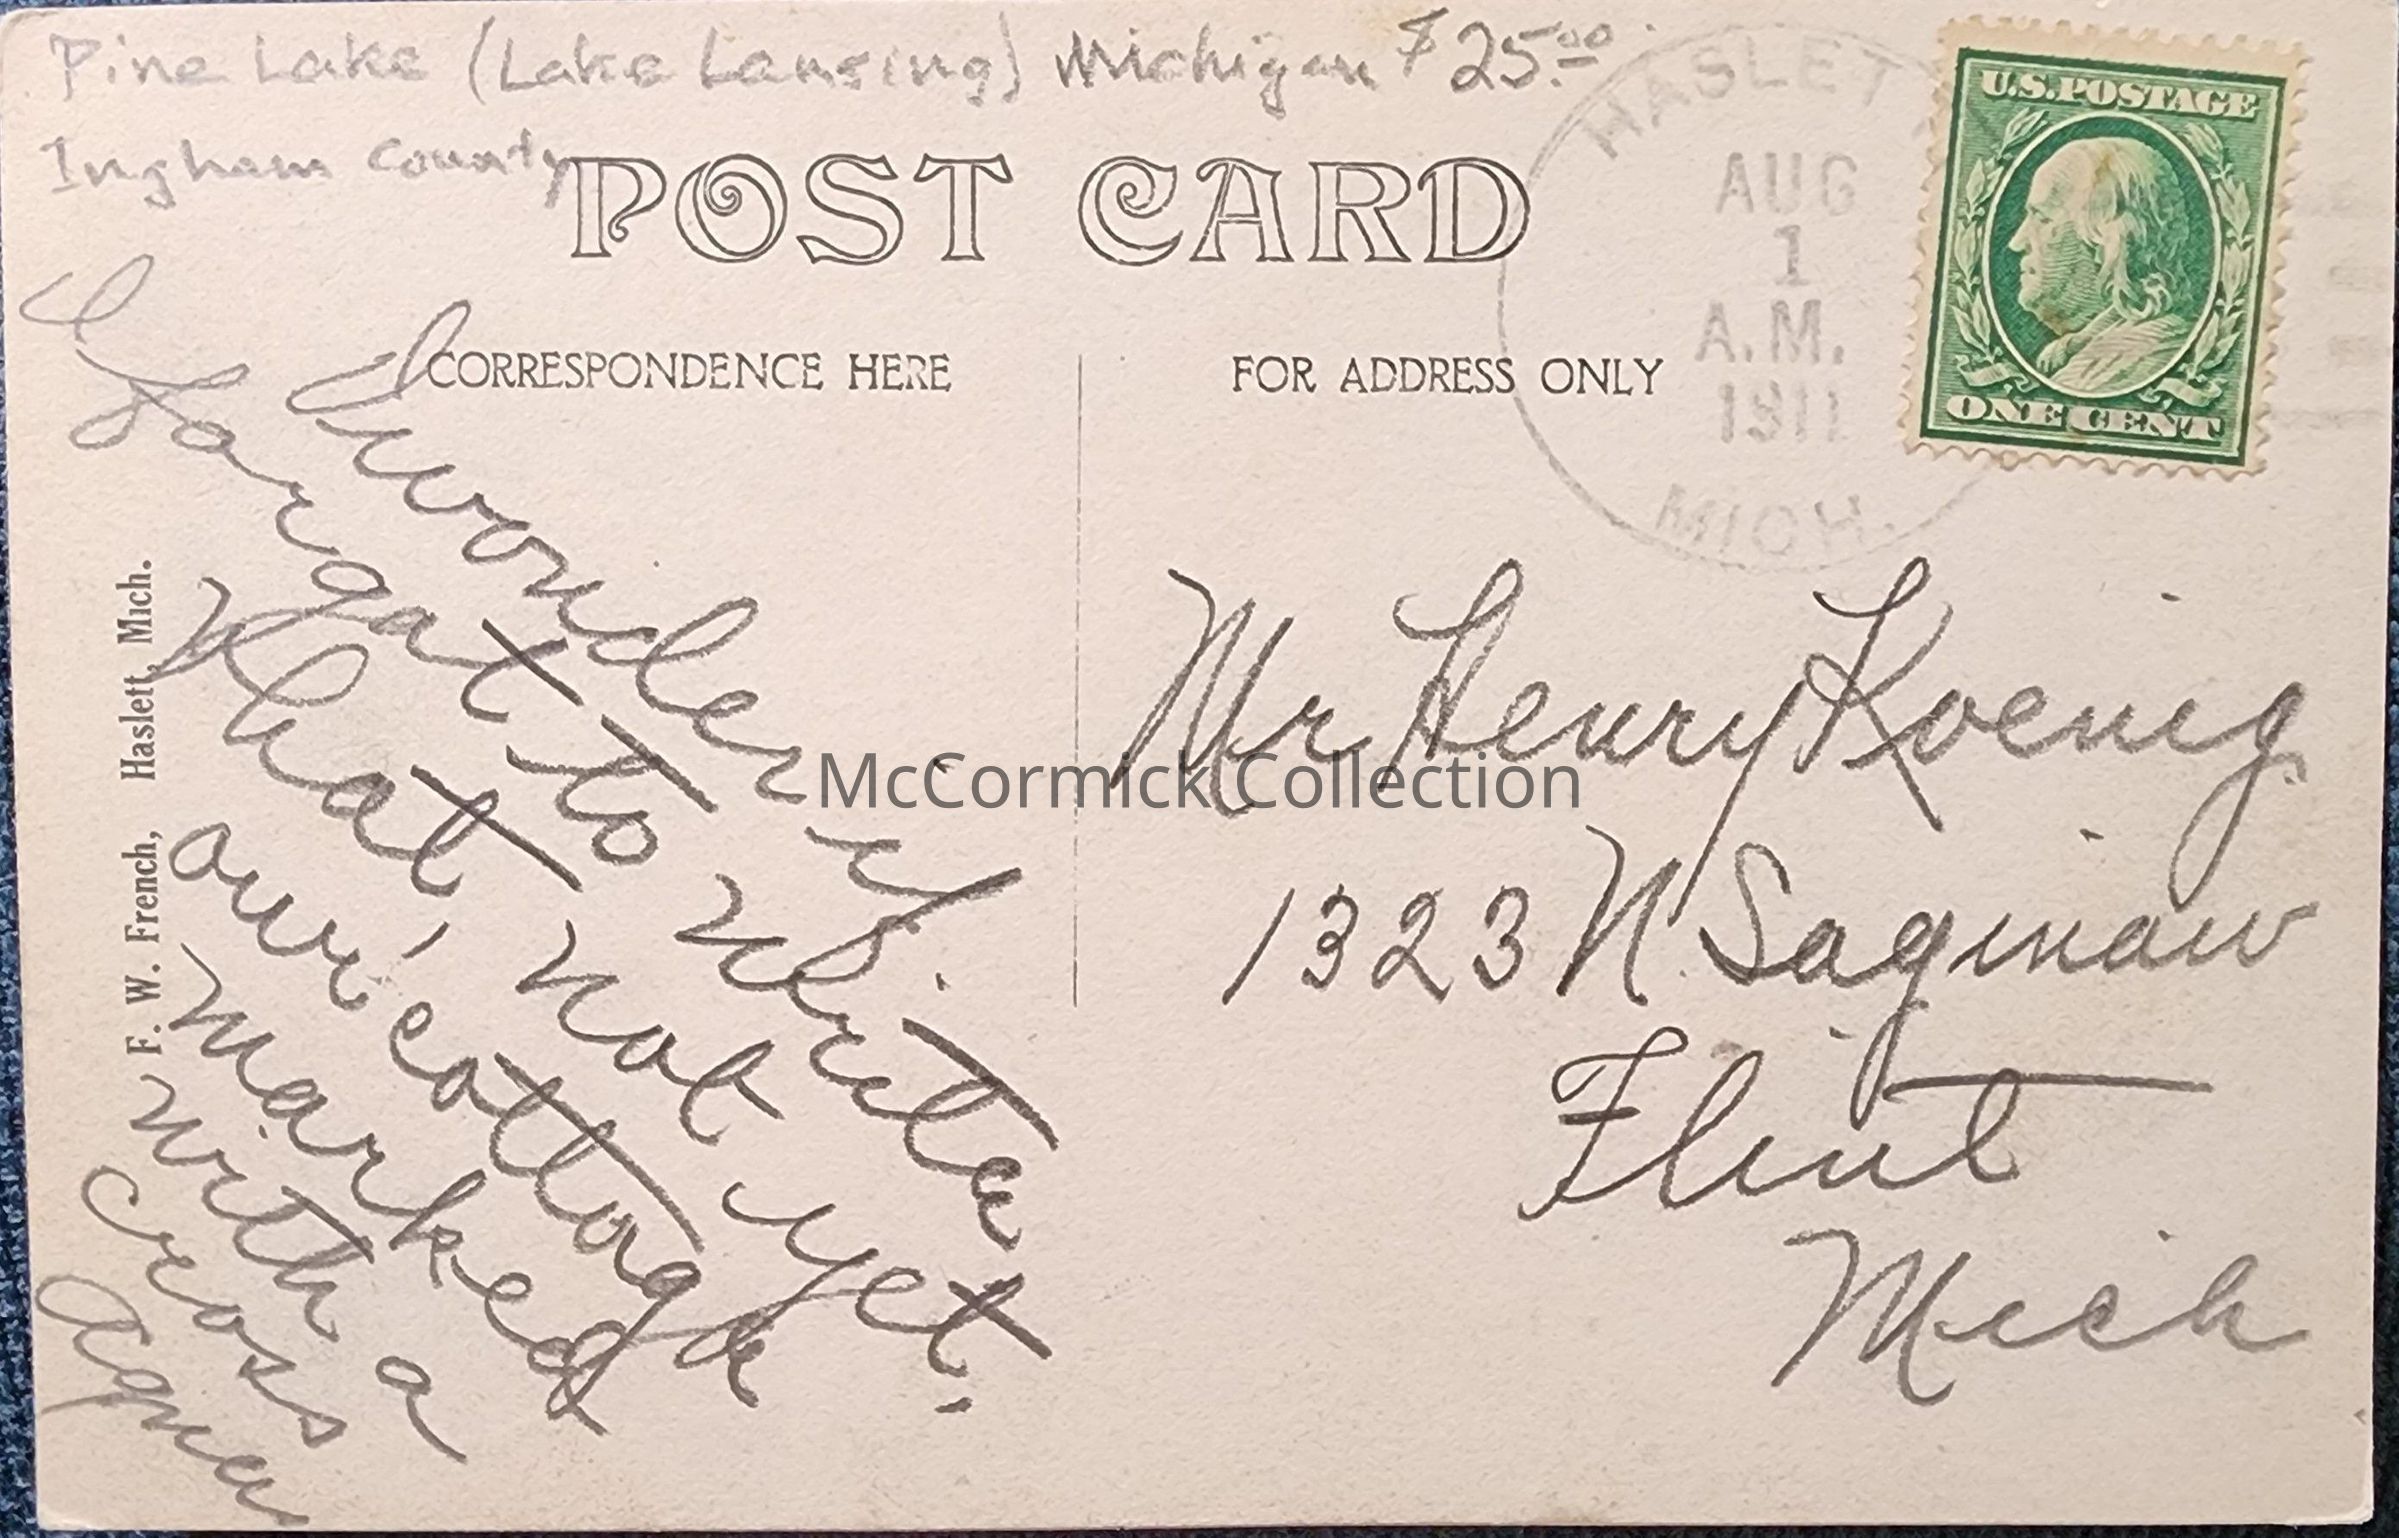 Pine Lake (Lake Lansing) Michigan $25.00
Ingham County
POST CARD
HASLET
AUG
1
A.M.
1911
MICH.
U.S. POSTAGE
ONE CENT
CORRESPONDENCE HERE
FOR ADDRESS ONLY
I wonder if
I forgat to write
What, not yet.
our cottage
marked
with a
cross
Agnes
F. W. French, Haslett, Mich.
Mr Henry Koenig
1323 N. Saginaw
Flint
Mich
McCormick Collection